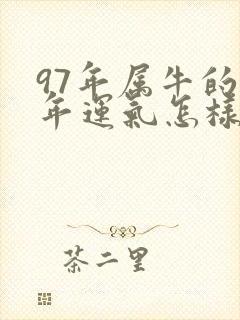 97年属牛的
年運氣怎樣
茶二里